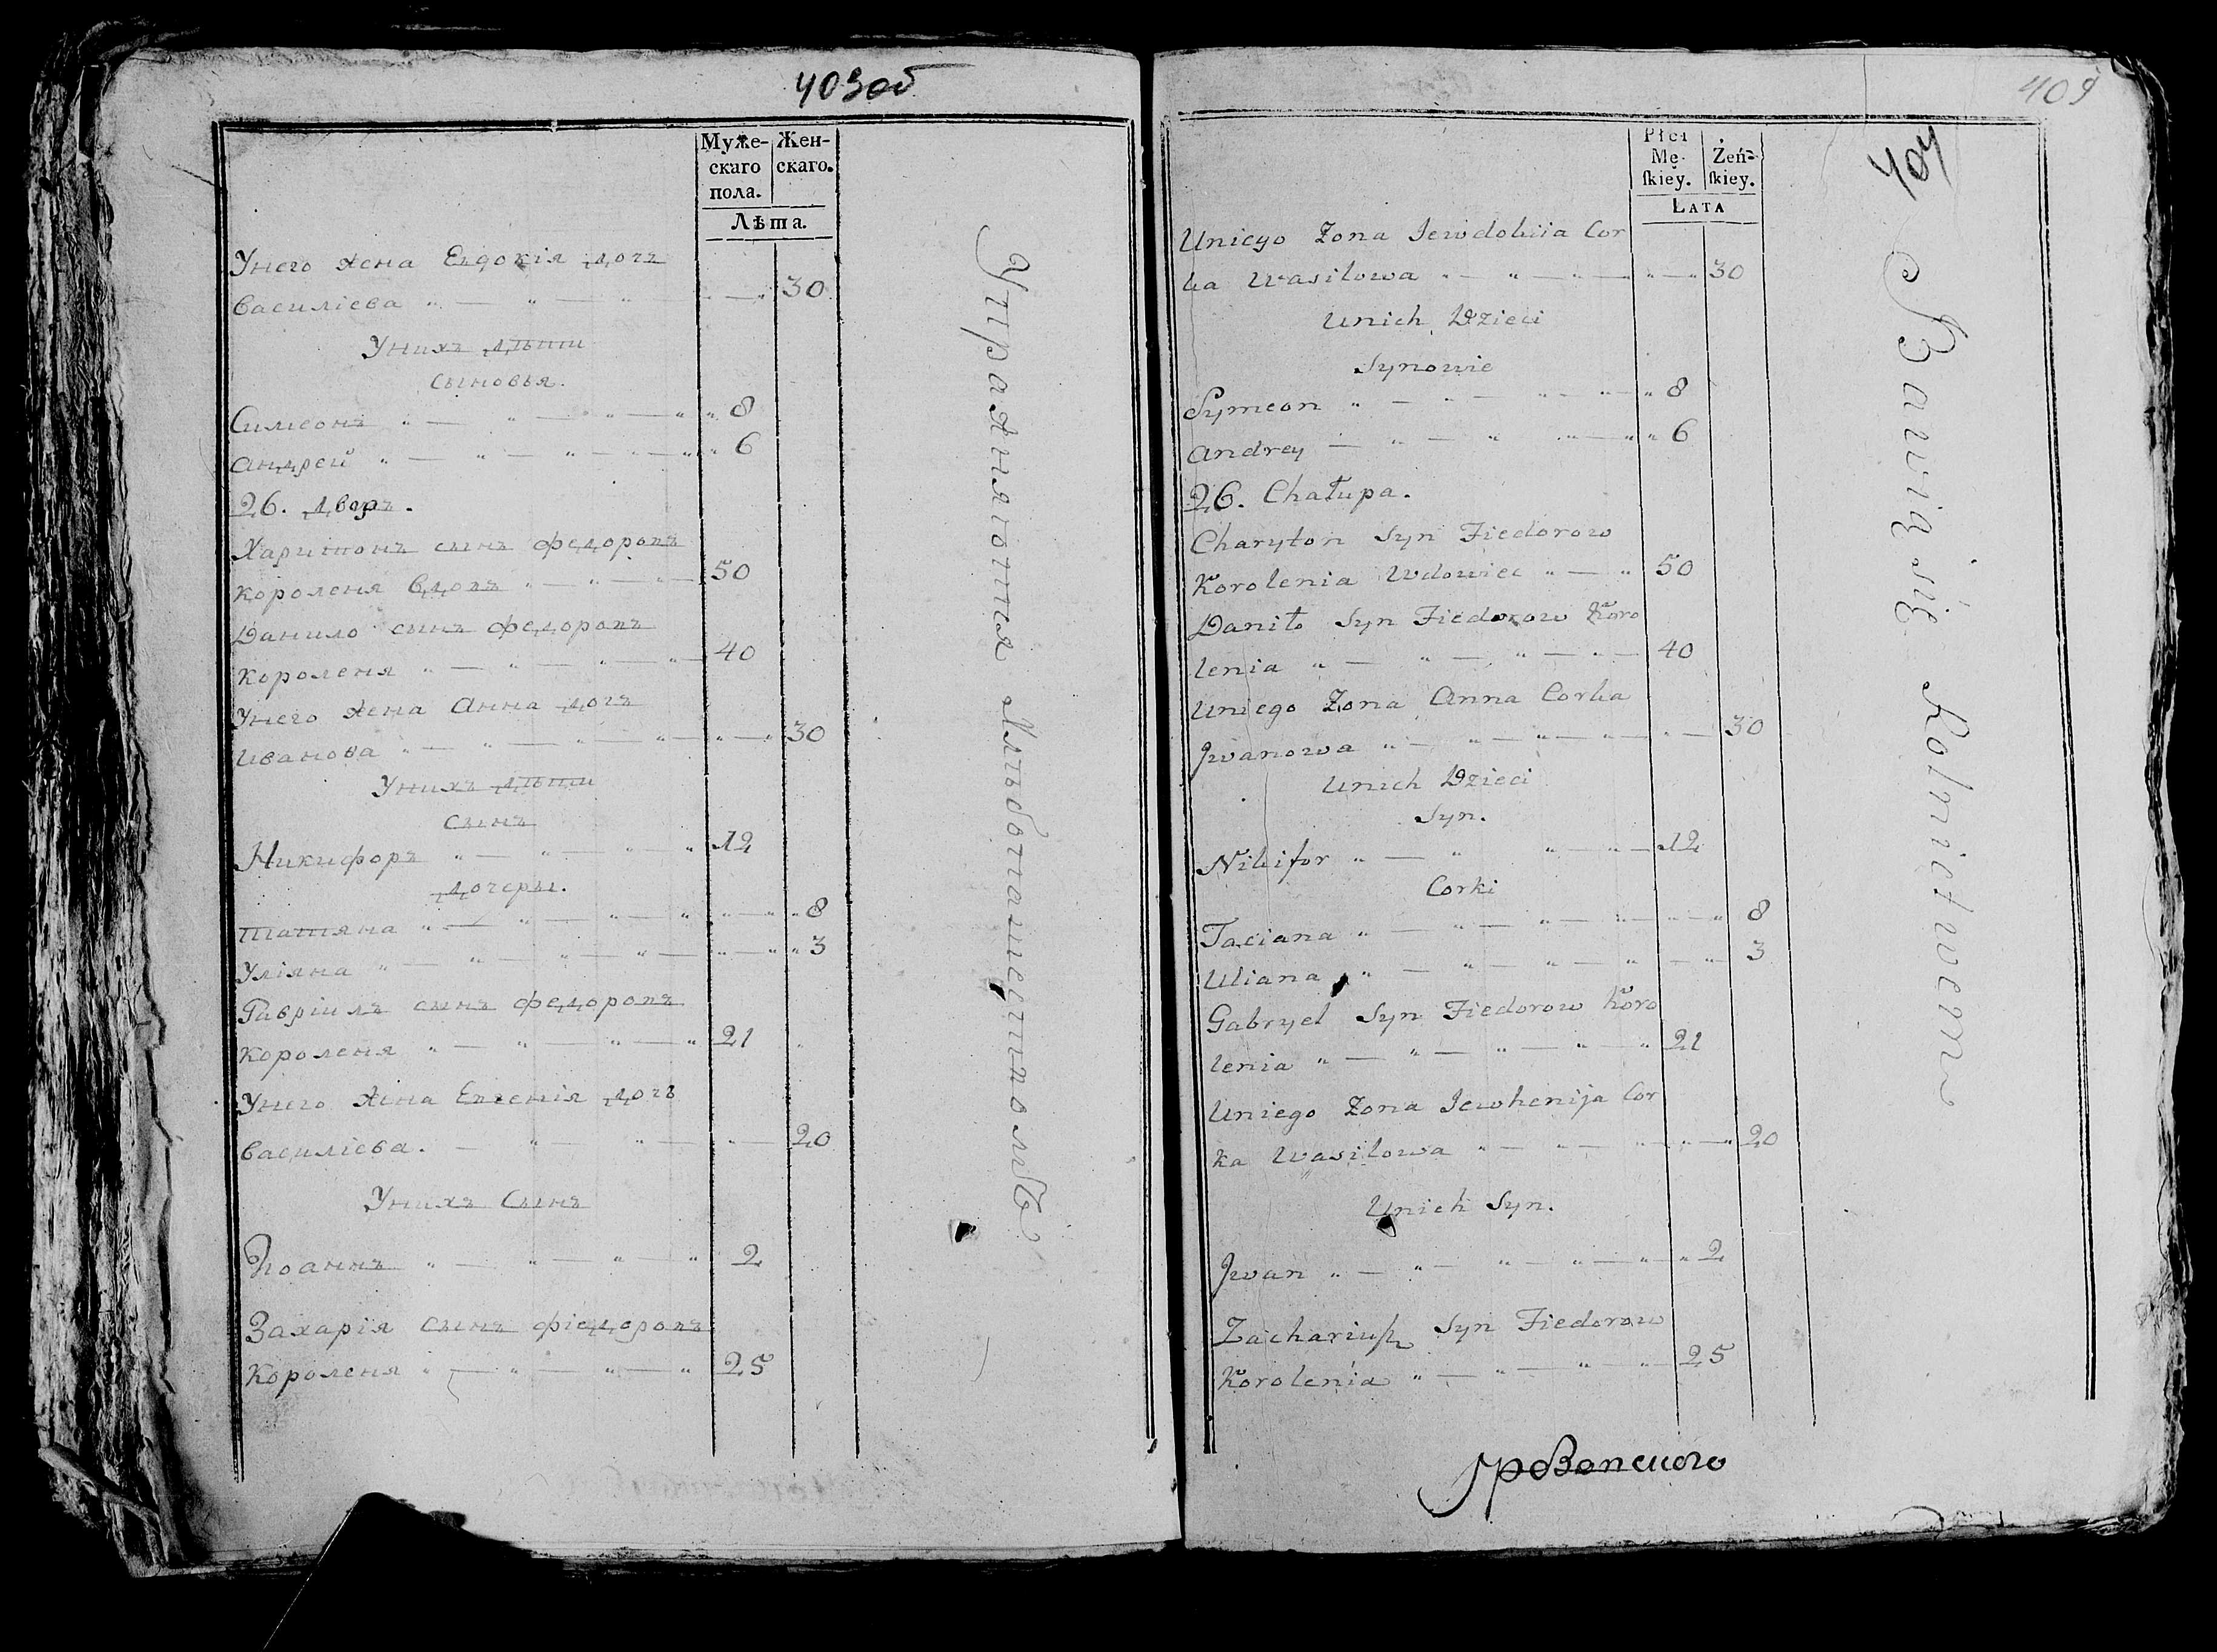 403об
Муже-
скаго
пола.
Жен-
скаго.
Лѣта.
Унего жена Евдокія дочь
василіева " — " — " " — " 30
Унихъ дѣти
сыновья.
Симеонъ " — " — " — " " 8
андрей " — " — " — " — " " 6
26. дворъ.
Харитонъ сынъ федоровъ
короленя вдовъ " — " — " — 50
Данило сынъ федоровъ
короленя " — " — " — " — 40
Унего жена Анна дочь
иванова " — " — " — " — " — " 30
Унихъ дѣти
сынъ
Никифоръ " — " — " — " 12
дочеры.
татяна " — " — " — " " — " " 8
Уліяна " — " — " — " — " — " " 3
Гавріилъ сынъ федоровъ
короленя " — " — " — " 21
Унего жена Евгенія дочь
василіева. — " — " — " — 20
Унихъ Сынъ
Иоаннъ " — " — " — " 2
Захарія сынъ фіедоровъ
короленя " — " — " — " 25
Упражняются хлѣбопашествомъ
409
404
Płci
Mę-
skiey.
Żeń-
skiey.
Lata
Uniego Zona Jewdokiia Cor
ka Wasilowa " — " — " — " — " 30
Unich Dzieci
Synowie
Symeon " — " — " — " — " 8
Andrey — " — " " — " " 6
26. Chałupa.
Charyton Syn Fiedorow
Korolenia Wdowiec " — " 50
Daniło Syn Fiedorow Koro
lenia " — " — " — " — 40
Uniego Zona Anna Corka
Jwanowa " — " — " — " — " — 30
Unich Dzieci
Syn.
Nikifor " — " " — " — 12
Corki
Taciana " — " — " — " — " — " 8
Uliana " — " — " — " — " 3
Gabryel Syn Fiedorow Koro
lenia " — " — " — " — " 21
Uniego Zona Jewhenija Cor
ka Wasilowa " — " — " — " — " 20
Unich Syn.
Jwan " — " — " — " — " — " 2
Zachariusz Syn Fiedorow
Korolenia " — " — " — " — 25
Bawią się Rolnictwem